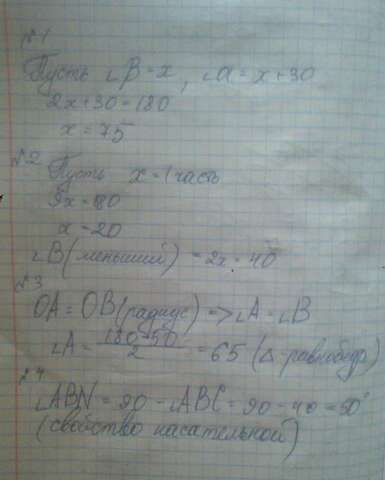 №1
Пусть ∠B=x, ∠α=x+30
2x+30=180
x=75
№2 Пусть x=1 часть
9x=180
x=20
∠B(меньший)=2x=40
№3
OA=OB(радиус)=>∠A=∠B
∠A=(180-50)/2=65(△-равнобедр)
№4
∠ABN=90-∠ABC=90-40=50°
(свойство касательной)